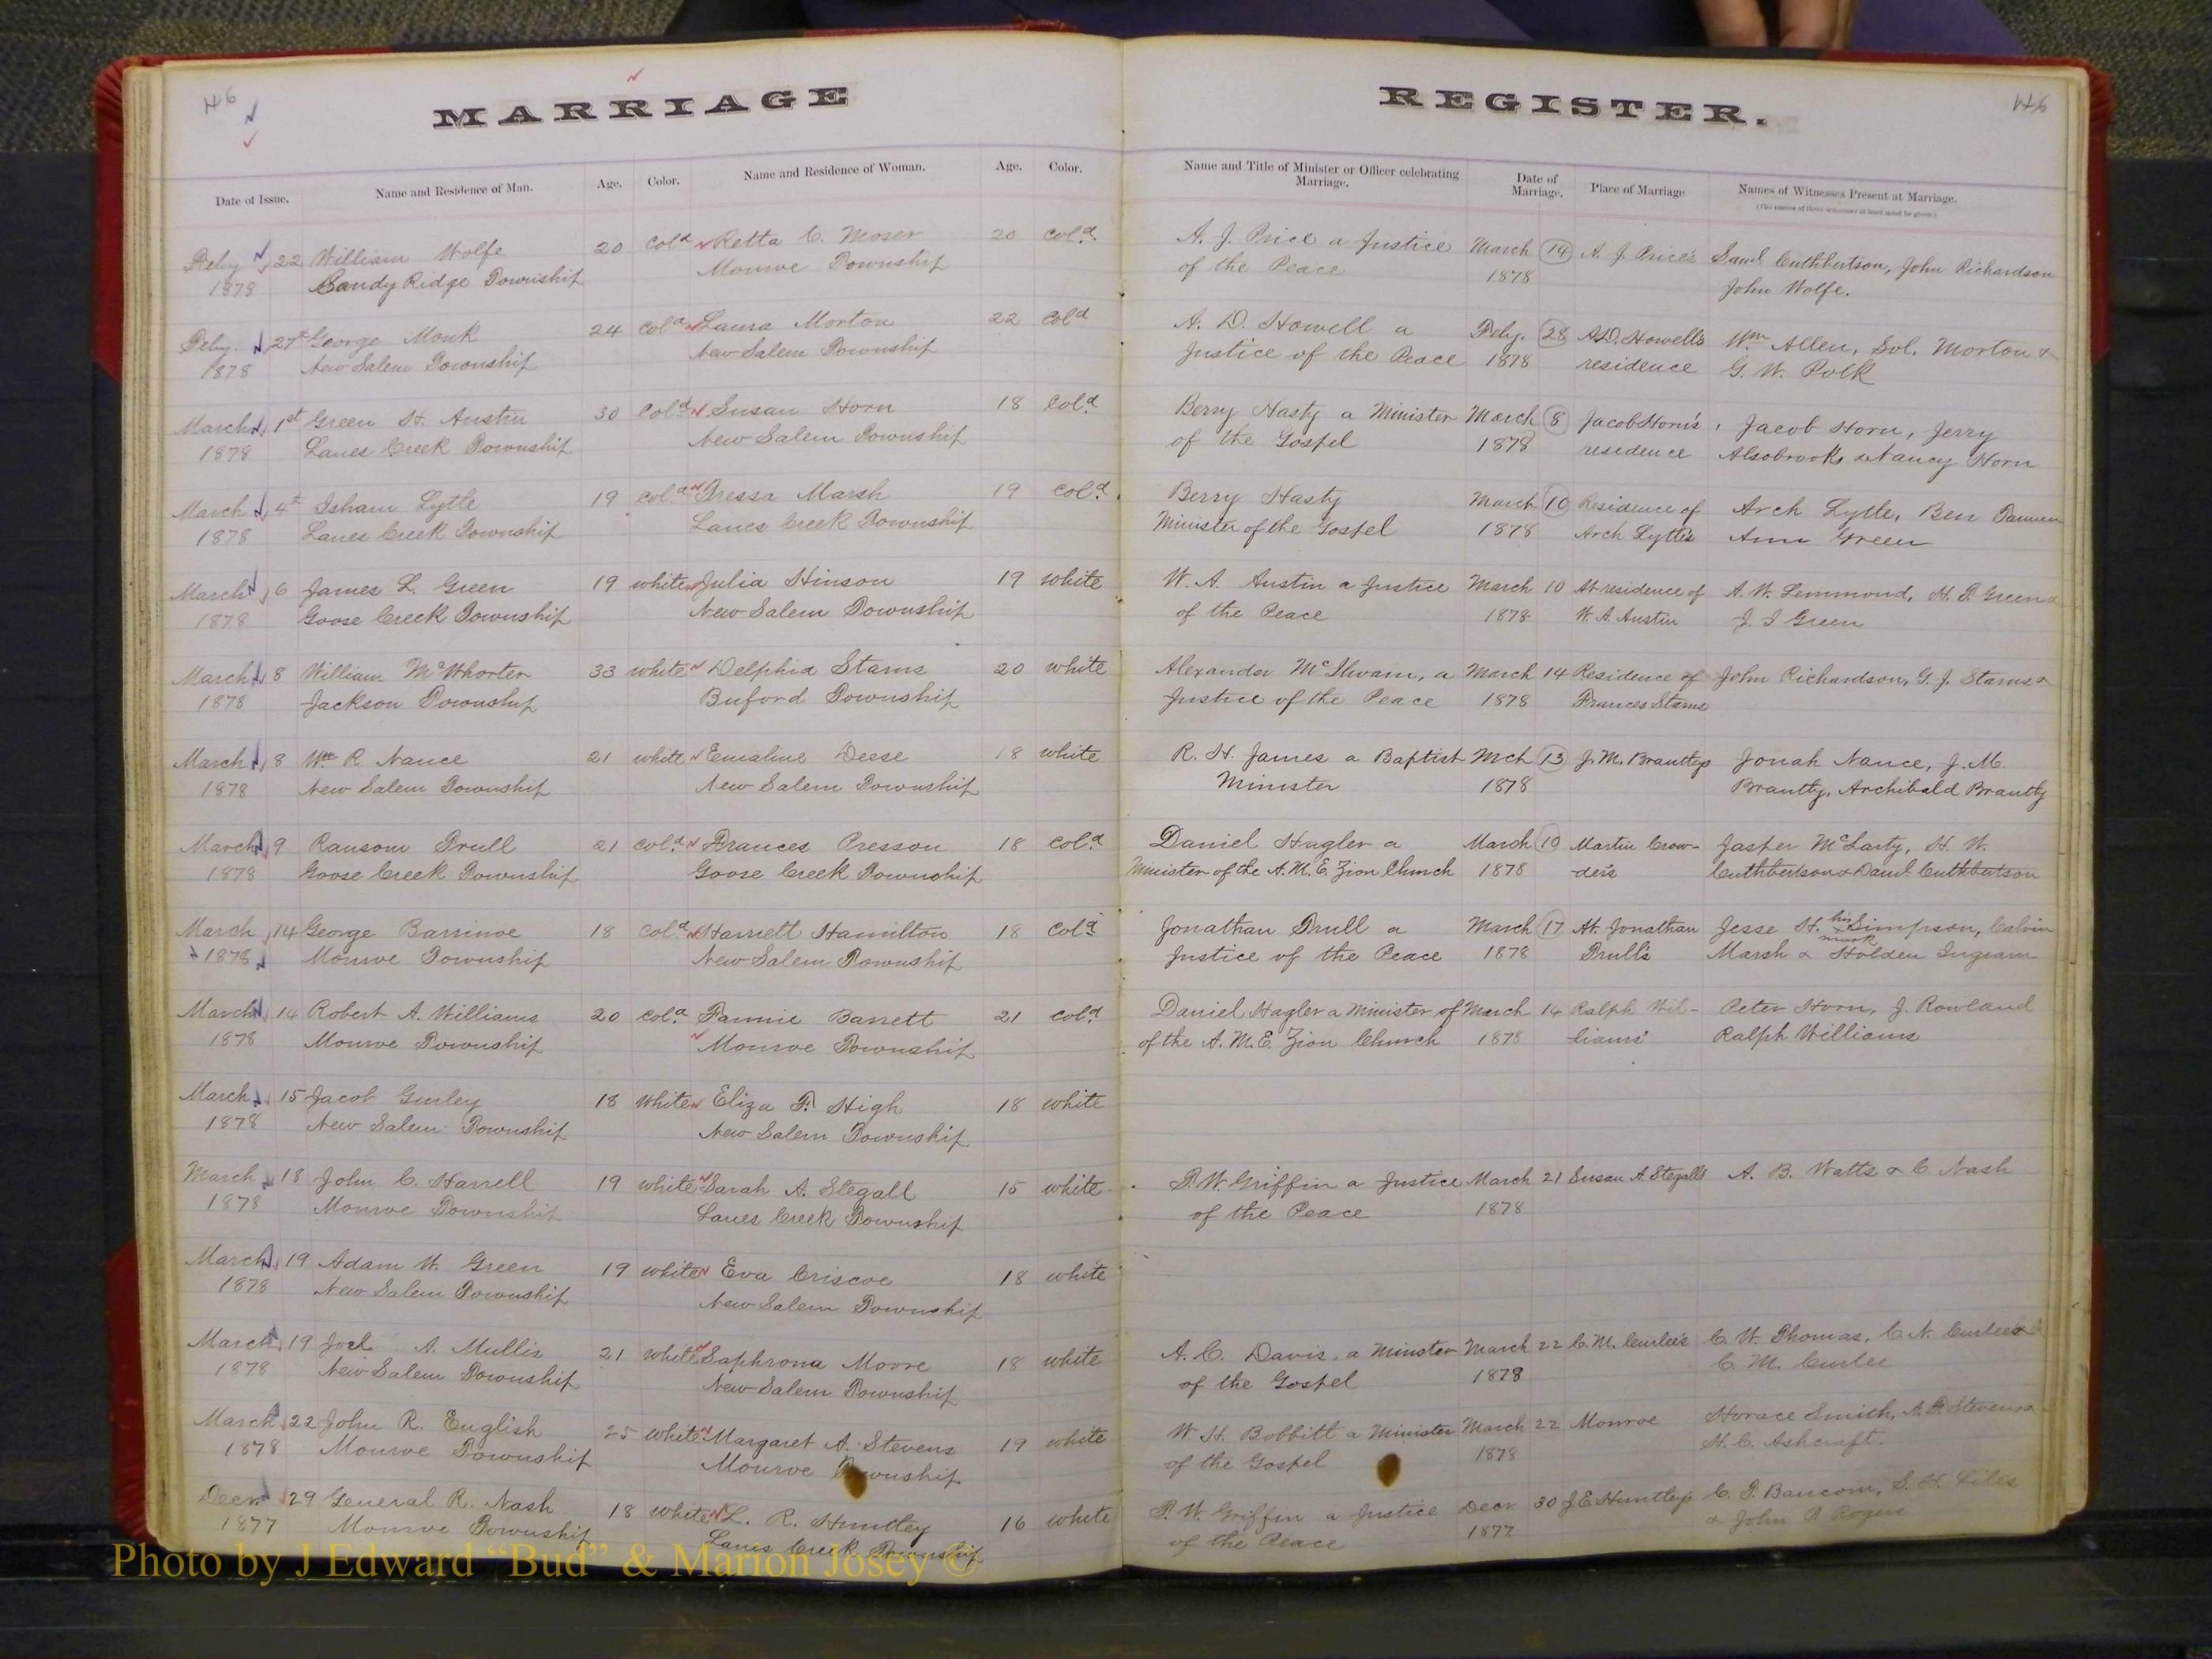 46
46
MARRIAGE REGISTER.
Date of Issue. Name and Residence of Man. Age. Color. Name and Residence of Woman. Age. Color. Name and Title of Minister or Officer celebrating Marriage. Date of Marriage. Place of Marriage Names of Witnesses Present at Marriage.
(The names of three witnesses at least must be given)
Feby 22 William Wolfe 20 Cold Retta C. Moser 20 Cold. A. J. Price a Justice March 14 A. J. Price's Saml Cuthbertson, John Richardson
1878 Sandy Ridge Township Monroe Township of the Peace 1878 John Wolfe.
Feby. 27th George Monk 24 Cold Laura Morton 22 Cold A. D. Howell a Feby. 28 A.D. Howells Wm Allen, Sol. Morton &
1878 New Salem Township New Salem Township Justice of the Peace 1878 residence G. W. Polk
March 1st Green H. Austin 30 Cold Susan Horn 18 Cold Berry Hasty a Minister March 8 Jacob Horn's Jacob Horn, Jerry
1878 Lanes Creek Township New Salem Township of the Gospel 1878 residence Alsobrooks & Nancy Horn
March 4th Isham Lytle 19 Cold Tressa Marsh 19 Cold. Berry Hasty March 10 Residence of Arch Lytle, Ben
1878 Lanes Creek Township Lanes Creek Township Minister of the Gospel 1878 Arch Lytle's Ann Green
March 6 James L. Green 19 white Julia Hinson 19 white W. A. Austin a Justice March 10 At residence of A. W. Lemmond, H. D. Green &
1878 Goose Creek Township New Salem Township of the Peace 1878 W. A. Austin J. I Green
March 8 William McWhorter 33 white Delphia Starns 20 white Alexander McIlwain, a March 14 Residence of John Richardson, G. J. Starns &
1878 Jackson Township Buford Township Justice of the Peace 1878 Frances Starns
March 8 Wm R Nance 21 white Emaline Deese 18 white R. H. James a Baptist Mch 13 J. M. Brantlys Jonah Nance, J. M.
1878 New Salem Township New Salem Township Minister 1878 Brantly, Archibald Brantly
March 9 Ransom Trull 21 Cold Frances Presson 18 Cold Daniel Hagler a March 10 Martin Crow- Jasper McLarty, H. W.
1878 Goose Creek Township Goose Creek Township Minister of the A. M. E. Zion Church 1878 der's Cuthbertson & Danl. Cuthbertson
March 14 George Barrinoe 18 Cold Harriett Hamilton 18 Cold Jonathan Trull a March 17 At Jonathan Jesse H. his x mark Simpson, Calvin
1878 Monroe Township New Salem Township Justice of the Peace 1878 Trull's Marsh & Holden Ingram
March 14 Robert A. Williams 20 Cold Fannie Barrett 21 Cold Daniel Hagler a Minister of March 14 Ralph Wil- Peter Horn, J. Rowland
1878 Monroe Township Monroe Township of the A. M. E. Zion Church 1878 liams' Ralph Williams
March 15 Jacob Gurley 18 white Eliza F. High 18 white
1878 New Salem Township New Salem Township
March 18 John C. Harrell 19 white Sarah A. Stegall 15 white P. W. Griffin a Justice March 21 Susan A. Stegalls A. B. Watts & C Nash
1878 Monroe Township Lanes Creek Township of the Peace 1878
March 19 Adam W. Green 19 white Eva Criscoe 18 white
1878 New Salem Township New Salem Township
March 19 Joel A. Mullis 21 white Saphrona Moore 18 white A. C. Davis, a Minister March 22 C. M. Curlee's C. W. Thomas, C. N. Curlee &
1878 New Salem Township New Salem Township of the Gospel 1878 C. M. Curlee
March 22 John R. English 25 white Margaret A. Stevens 19 white W. H. Bobbitt a Minister March 22 Monroe Horace Smith, A. F. Stevens &
1878 Monroe Township Monroe Township of the Gospel 1878 H. C. Ashcraft.
Decr 29 General R. Nash 18 white L. R. Huntley 16 white P. W. Griffin a Justice Decr 30 J. E. Huntley's C. T. Baucom, S. H. Liles
1877 Monroe Township Lanes Creek Township of the Peace 1877 & John R Rogers
Photo by J Edward “Bud” & Marion Josey ©